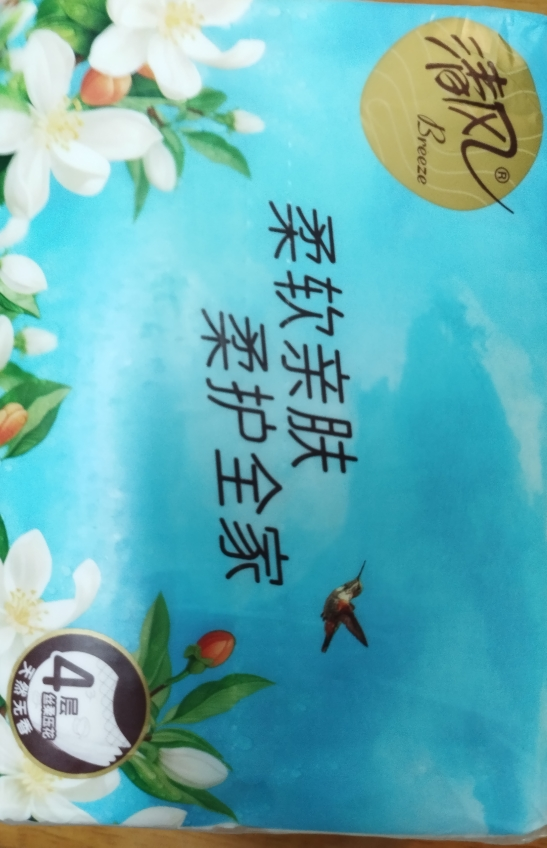 清风®
Breeze
柔软亲肤
柔护全家
4层
丝柔压花
天然无香